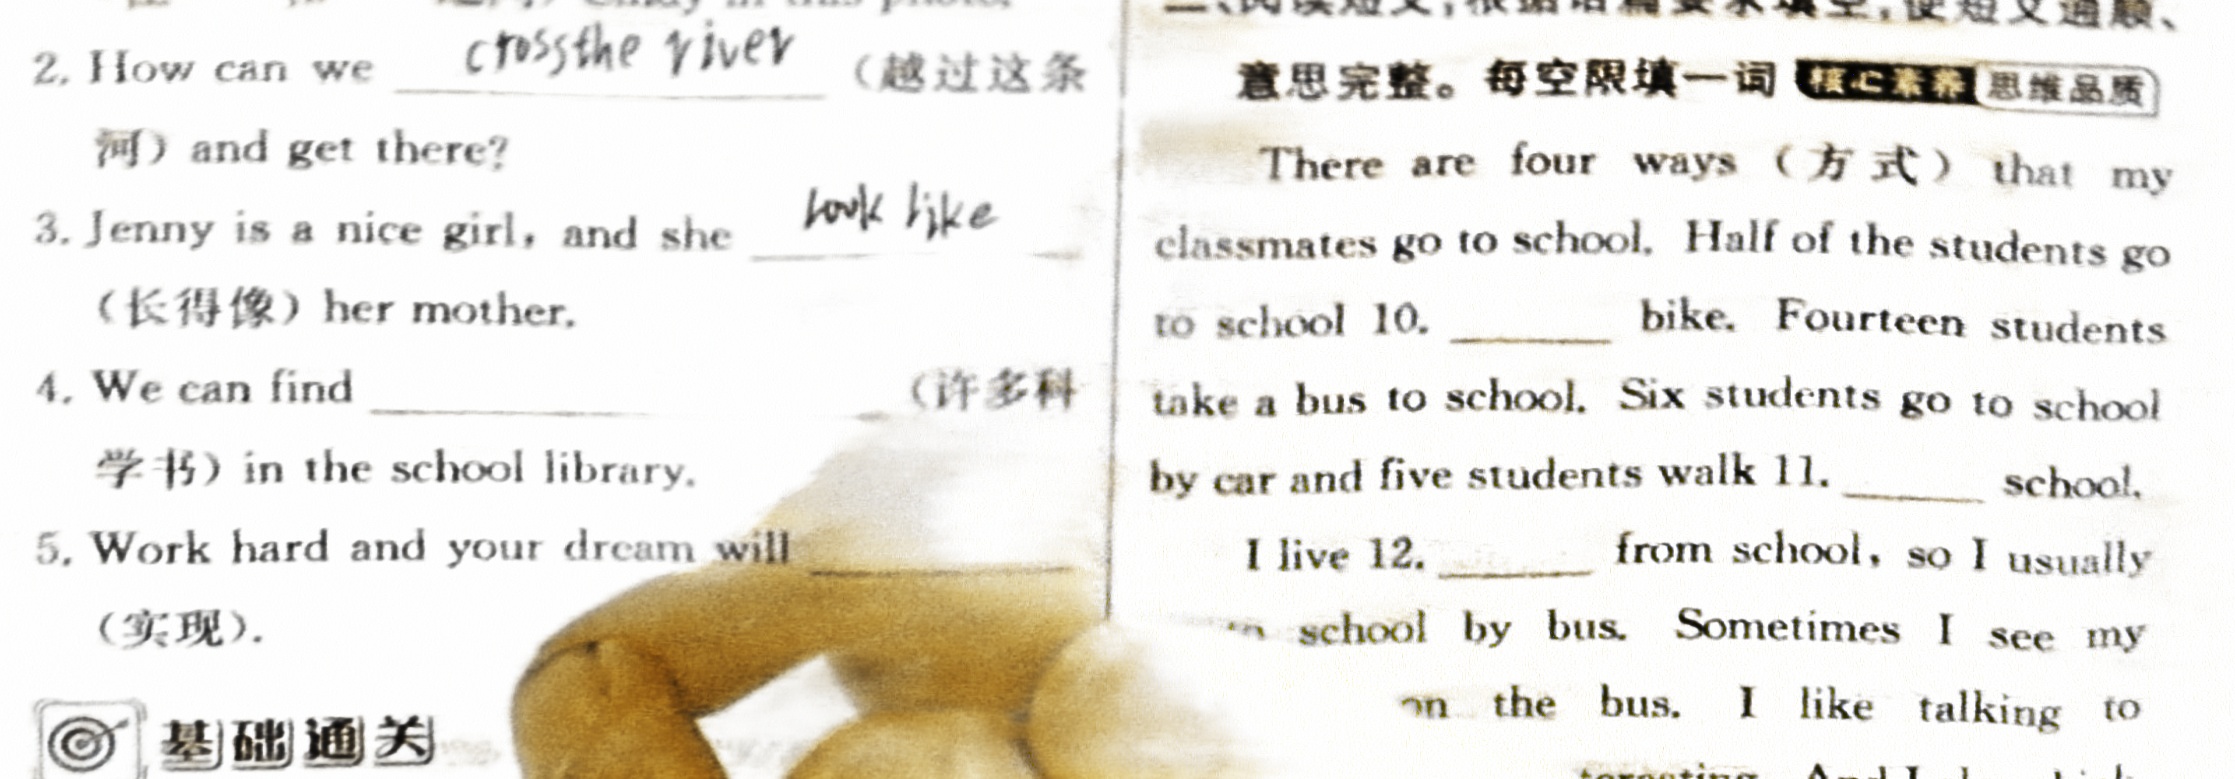 2. How can we crossthe river (越过这条
河) and get there?
3. Jenny is a nice girl, and she look like
(长得像) her mother.
4. We can find ____ (许多科
学书) in the school library.
5. Work hard and your dream will ____
(实现).
基础通关
二、阅读短文,根据语篇要求填空,使短文通顺、
意思完整。每空限填一词 核心素养 思维品质
There are four ways (方式) that my
classmates go to school. Half of the students go
to school 10. ____ bike. Fourteen students
take a bus to school. Six students go to school
by car and five students walk 11. ____ school.
I live 12. ____ from school, so I usually
school by bus. Sometimes I see my
on the bus. I like talking to